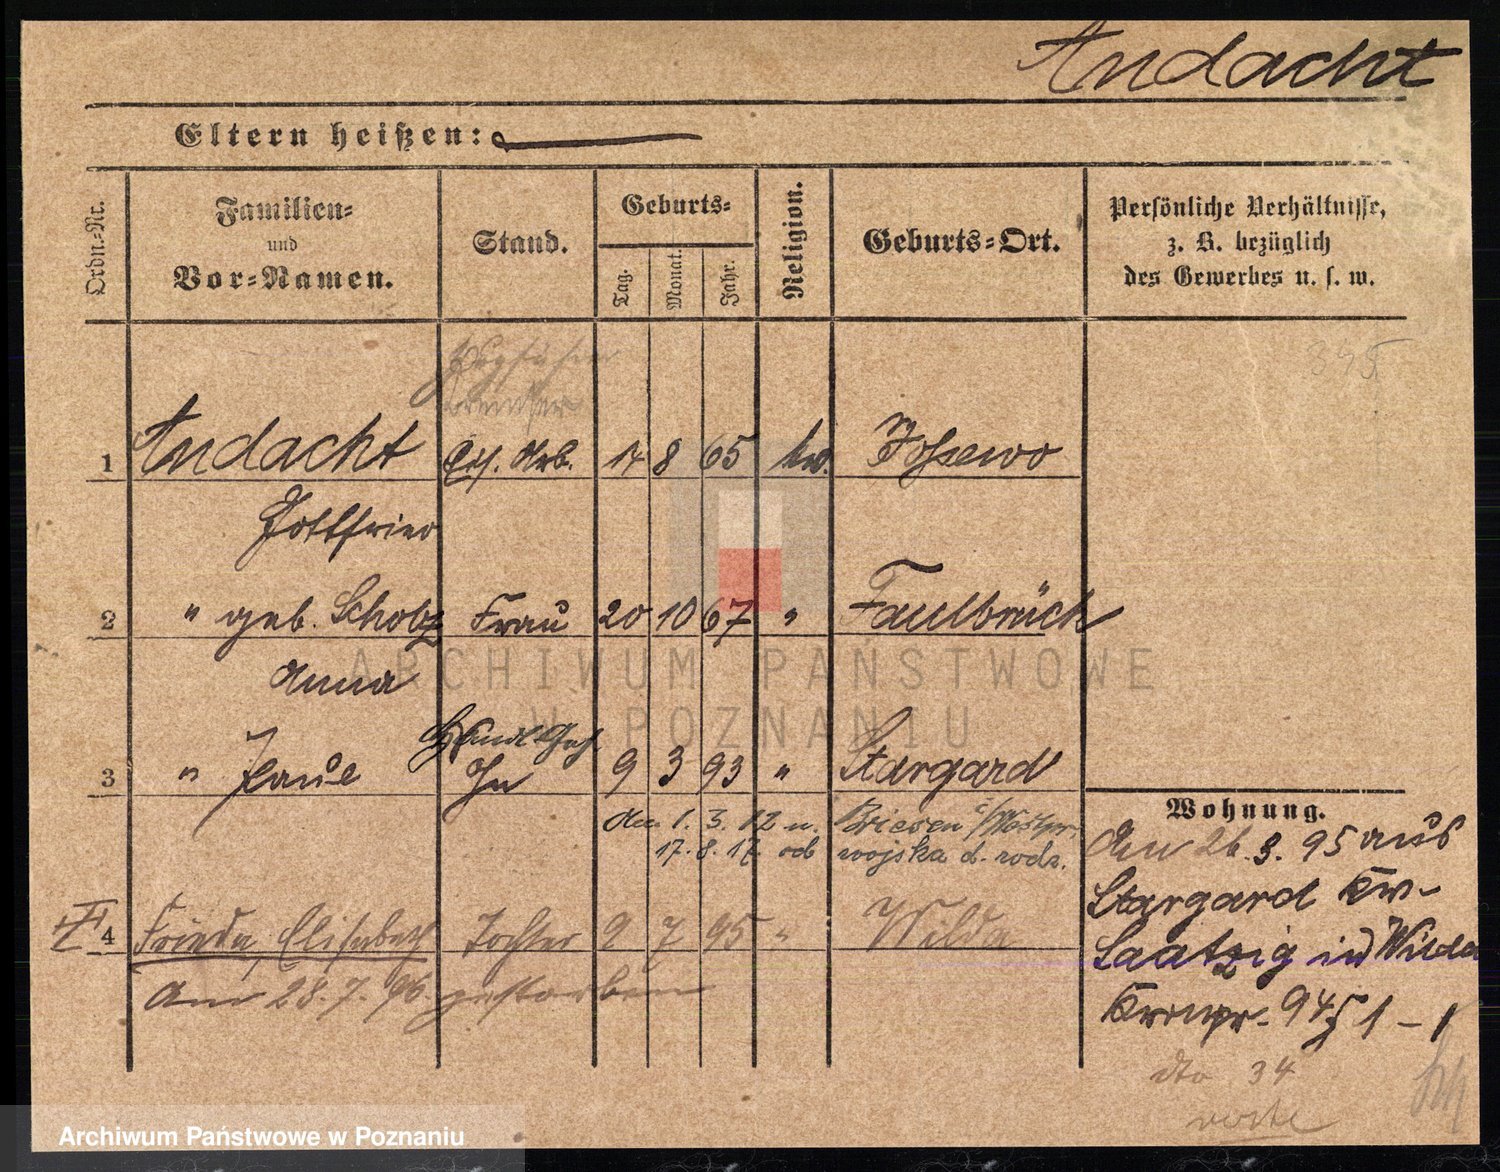 Andacht
Eltern heißen:
Ordn.-Nr.
Familien-
und
Vor-Namen.
Stand.
Geburts-
Tag.
Monat.
Jahr.
Religion.
Geburts-Ort.
Persönliche Verhältnisse,
z. B. bezüglich
des Gewerbes u. s. w.
345
1 Andacht Arb. 17 8 65 Jossewo
Gottfried
2 " geb. Scholz Frau 20 10 67 " Faulbrück
Anna
3 " Paul 9 3 93 " Stargard
1. 3. 12 u. Briesen i/Westpr.
17. 8. 17 od wojska d. rodz.
4 Frieda, Elisabeth Tochter 9 7 95 " Wilda
am 28. 7. 96. gestorben
Wohnung.
Am 26. 3. 95 aus
Stargard Kr.
Saatzig in Wilda
Kronpr. 94 1 - 1
dto 34
ARCHIWUM PAŃSTWOWE
W POZNANIU
Archiwum Państwowe w Poznaniu